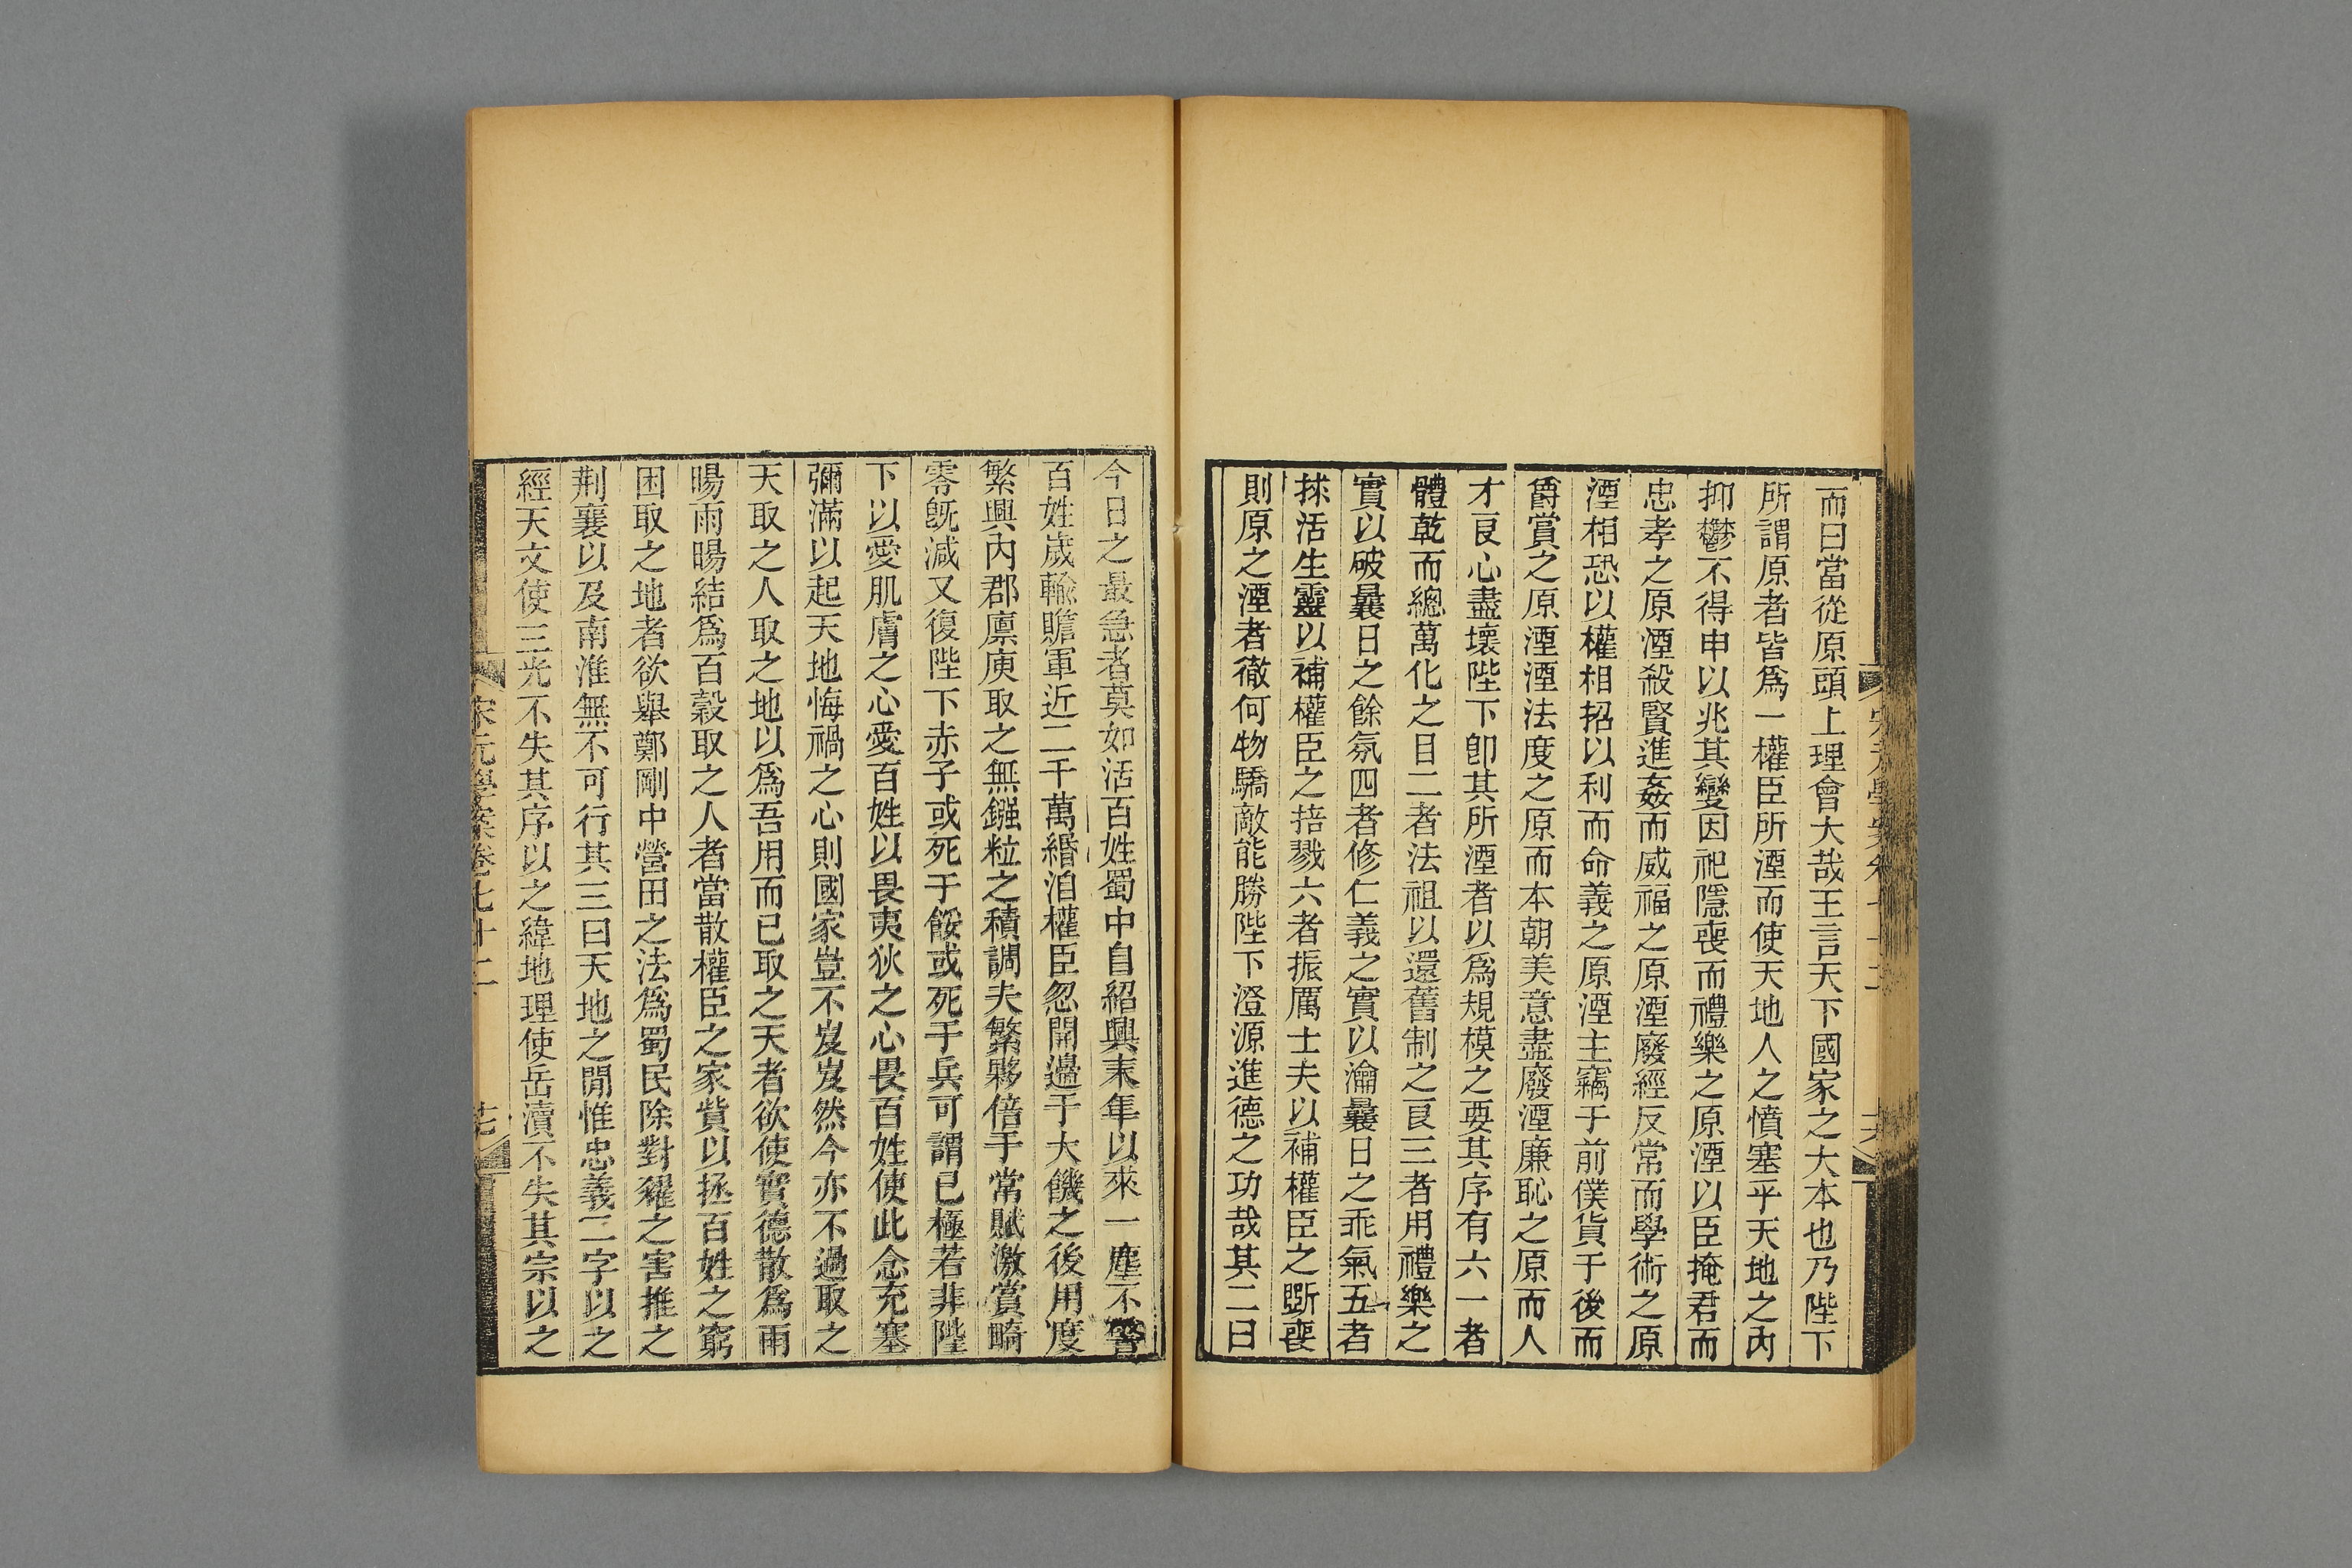 而曰當從原頭上理會大哉王言天下國家之大本也乃陛下
所謂原者皆爲一權臣所湮而使天地人之憤塞乎天地之內
抑鬱不得申以兆其變因祀隱喪而禮樂之原湮以臣掩君而
忠孝之原湮殺賢進姦而威福之原湮廢經反常而學術之原
湮相恐以權相招以利而命義之原湮主竊于前僕貨于後而
爵賞之原湮湮法度之原而本朝美意盡廢湮廉恥之原而人
才良心盡壞陛下卽其所湮者以爲規模之要其序有六一者
體乾而總萬化之目二者法祖以還舊制之良三者用禮樂之
實以破曩日之餘氛四者修仁義之實以瀹曩日之乖氣五者
捄活生靈以補權臣之掊戮六者振厲士夫以補權臣之斲喪
則原之湮者徹何物驕敵能勝陛下澄源進德之功哉其二曰
今日之最急者莫如活百姓蜀中自紹興末年以來一塵不警
百姓歲輸贍軍近二千萬緡洎權臣忽開邊于大饑之後用度
繁興內郡廩庾取之無鏹粒之積調夫繁夥倍于常賦激賞畸
零旣減又復陛下赤子或死于餒或死于兵可謂已極若非陛
下以愛肌膚之心愛百姓以畏夷狄之心畏百姓使此念充塞
彌滿以起天地悔禍之心則國家豈不岌岌然今亦不過取之
天取之人取之地以爲吾用而已取之天者欲使實德散爲雨
暘雨暘結爲百穀取之人者當散權臣之家貲以拯百姓之窮
困取之地者欲舉鄭剛中營田之法爲蜀民除對糴之害推之
荆襄以及南淮無不可行其三曰天地之閒惟忠義二字以之
經天文使三光不失其序以之緯地理使岳瀆不失其宗以之
宋元學案卷七十二